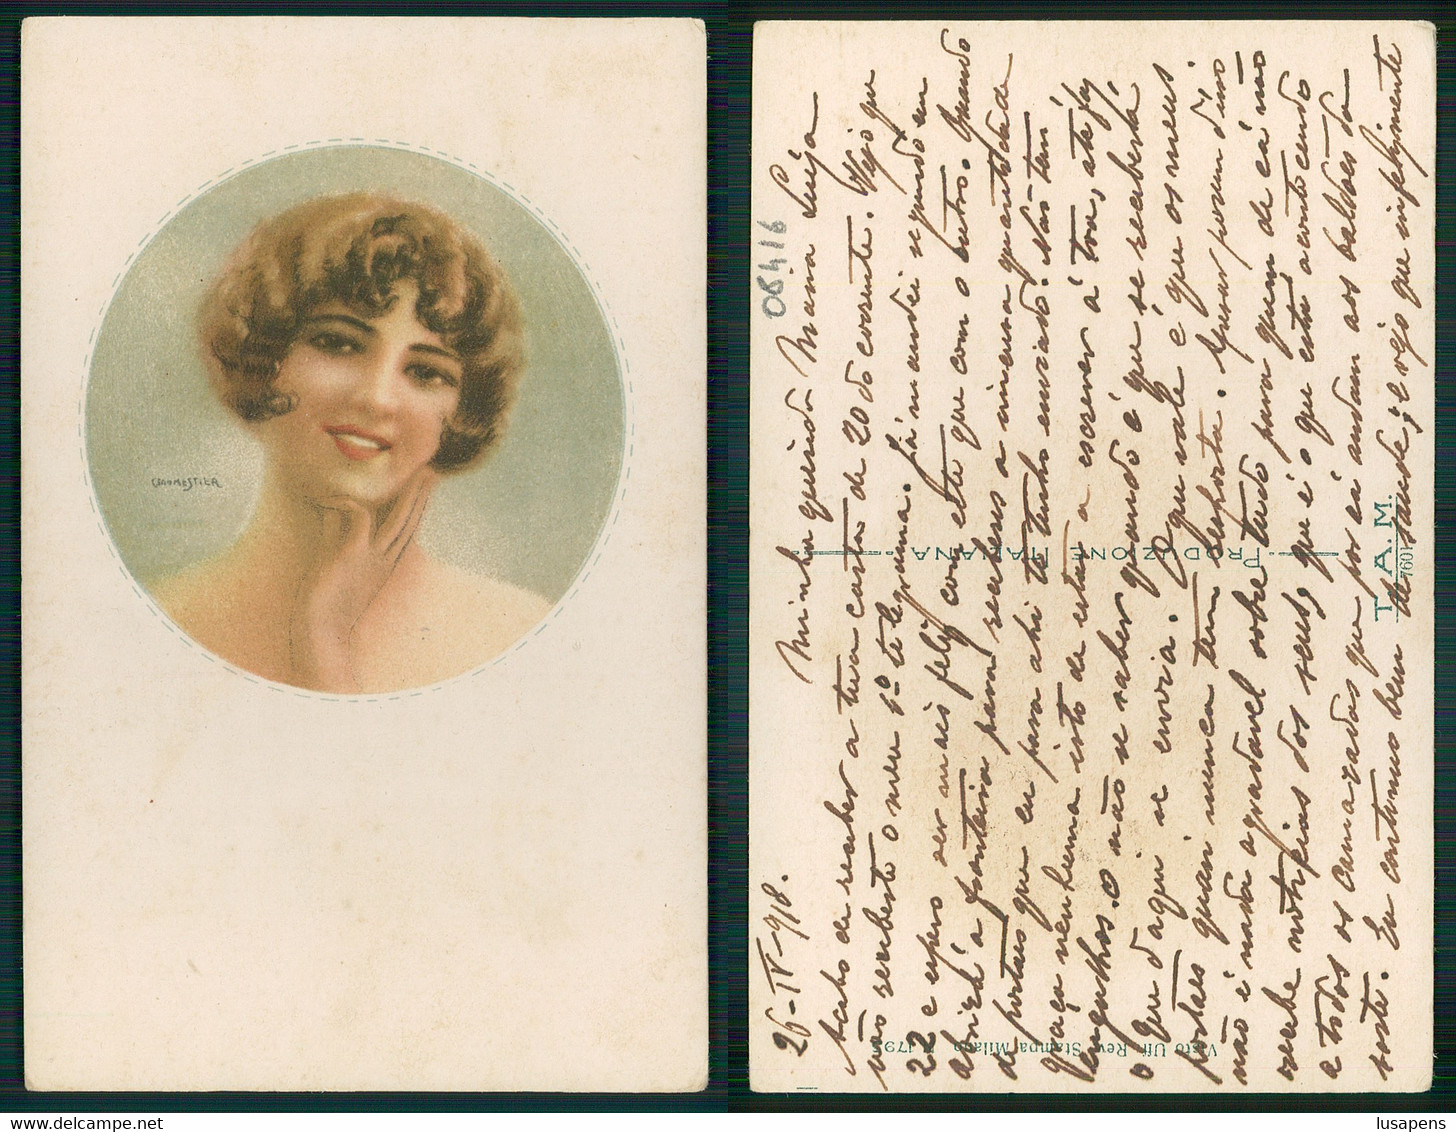 26-IV-918.
Minha querida Maria Luiza
Acabo de receber a tua carta de 20 do corrente. Vejo que
não recebeste o meu 1º telegrama. Já mandei segundo em
22 e espero ser mais feliz com este que com o outro. Quando
abrirá a fronteira para receberes a imensa quantidade
de postaes que eu para ahi te tenho enviado. Não tem
graça nenhuma isto de estar a escrever á tôa, até faz
engulhos. O não se saber quando é que se receberá
o que d'aqui se envia. O que vale é que os meus
postaes quasi nunca tem resposta. Quasi porem d'isso
não é nada agradavel sobre tudo para quem de cá não
recebe noticias dos seus, que é o que está acontecendo
a todos os camaradas que por cá andam aos baldões da
sorte. Eu continuo bem de saude, e vejo que infelizmente
08416
CLAUMESTIER
PRODUZIONE ITALIANA
T. A. M.
7601
Visto Uff. Rev. Stampa Milano N. 1795
lusapens